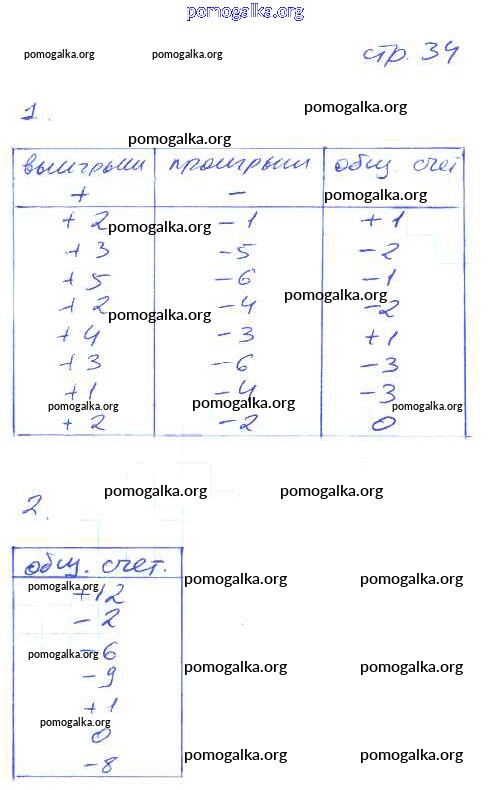 pomogalka.org
pomogalka.org pomogalka.org стр. 34
1. pomogalka.org
pomogalka.org
выигрыши проигрыши общ. счет
+ − pomogalka.org
+2 pomogalka.org −1 +1
+3 −5 −2
+5 −6 −1
pomogalka.org
+2 pomogalka.org −4 −2
+4 −3 +1
+3 −6 −3
+1 −4 −3
pomogalka.org pomogalka.org pomogalka.org
+2 −2 0
2. pomogalka.org pomogalka.org
общ. счет.
pomogalka.org pomogalka.org pomogalka.org
+12
−2
−6
pomogalka.org pomogalka.org pomogalka.org
−9
+1
pomogalka.org
0
pomogalka.org pomogalka.org
−8